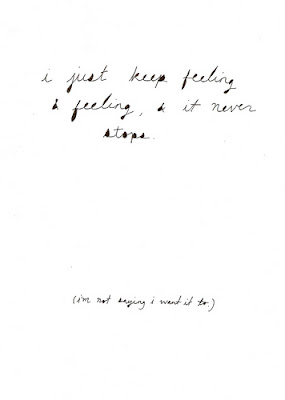 i just keep feeling
& feeling, & it never
stops.
(i'm not saying i want it to.)